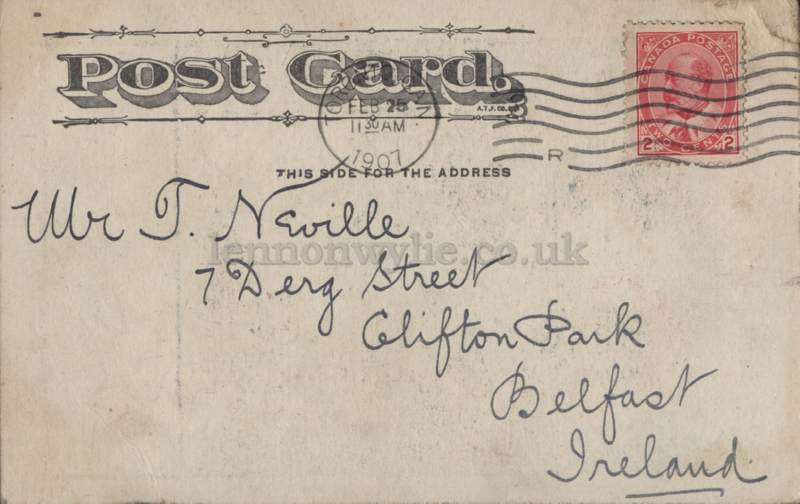 Post Card.
A.T.F. CO.
TORONTO, CAN.
FEB 25
11 30 AM
1907
R
CANADA POSTAGE
2 TWO CENTS 2
THIS SIDE FOR THE ADDRESS
Mr T. Neville
lennonwylie.co.uk
7 Derg Street
Clifton Park
Belfast
Ireland